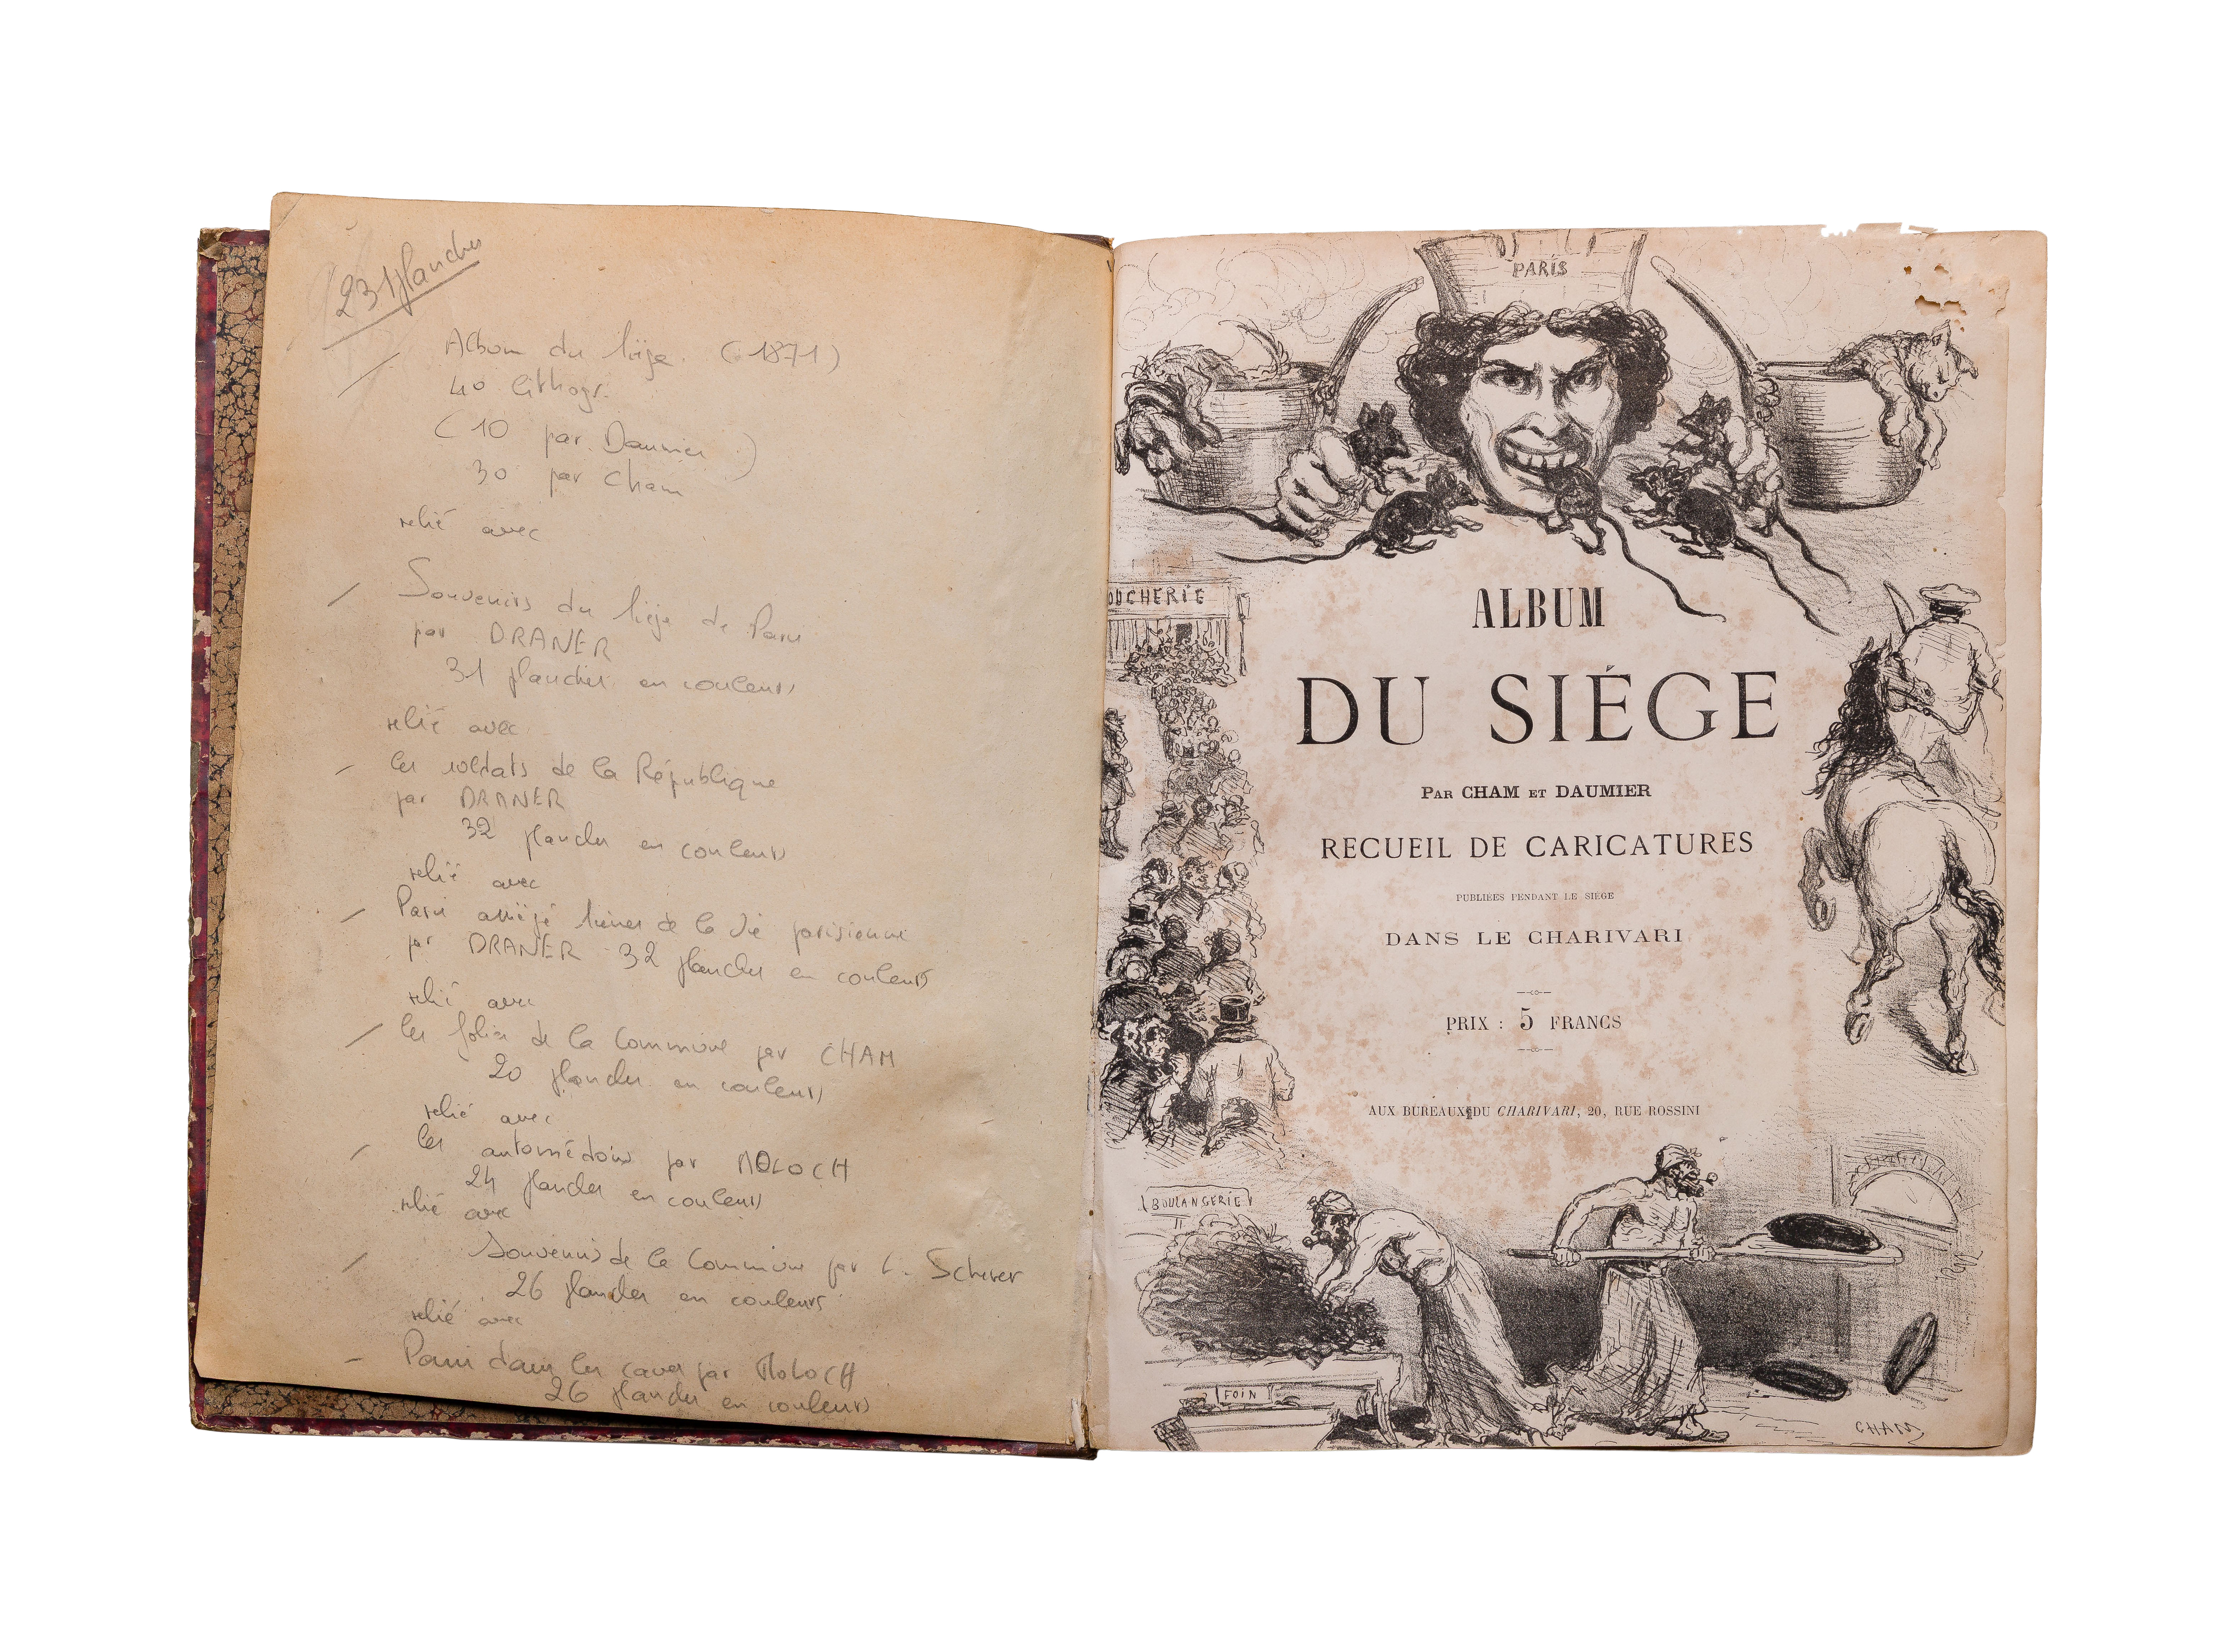 231 planches
Album du Siège (1871)
40 lithogr.
(10 par Daumier)
30 par Cham
relié avec
Souvenirs du Siège de Paris
par DRANER
31 planches en couleurs
relié avec
les soldats de la République
par DRANER
32 planches en couleurs
relié avec
Paris assiégé Scènes de la Vie parisienne
par DRANER 32 planches en couleurs
relié avec
les folies de la Commune par CHAM
20 planches en couleurs
relié avec
les automédons par MOLOCH
24 planches en couleurs
relié avec
Souvenirs de la Commune par L. Scherer
26 planches en couleurs
relié avec
Paris dans les caves par MOLOCH
26 planches en couleurs
PARIS
OUCHERIE
ALBUM
DU SIÉGE
PAR CHAM ET DAUMIER
RECUEIL DE CARICATURES
PUBLIÉES PENDANT LE SIÉGE
DANS LE CHARIVARI
PRIX : 5 FRANCS
AUX BUREAUX DU CHARIVARI, 20, RUE ROSSINI
BOULANGERIE
FOIN
CHAM